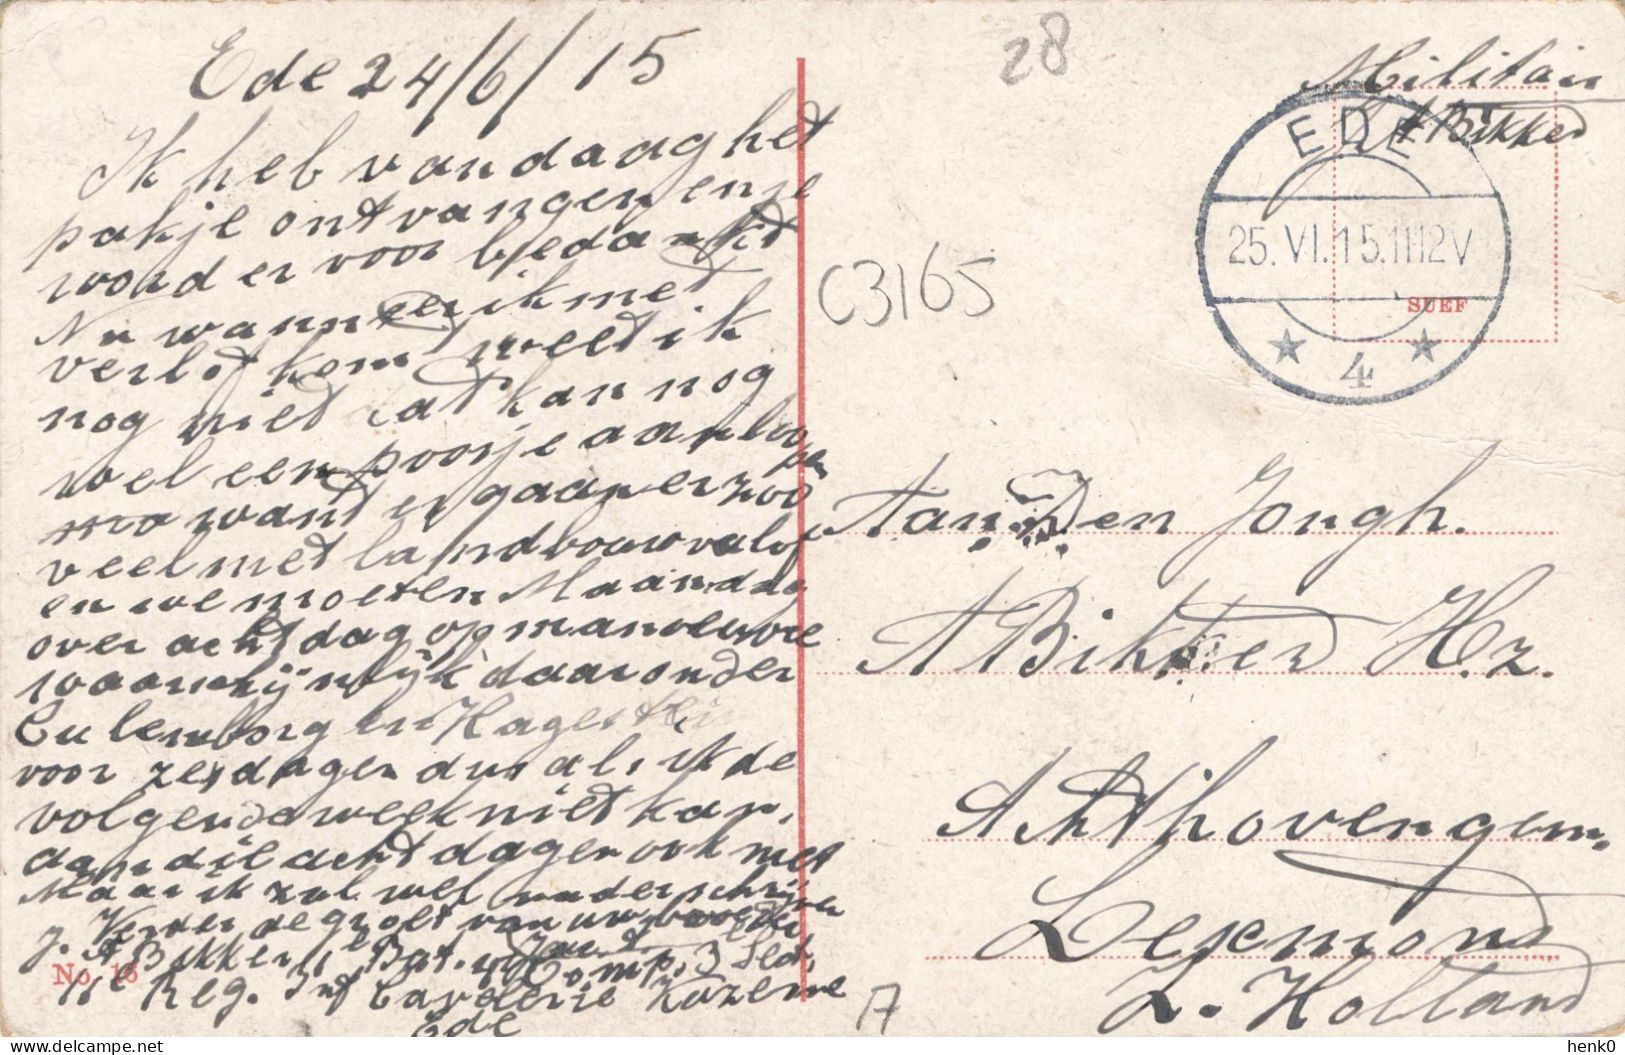 Ede 24/6/15
Ik heb vandaag het
pakje ontvangen en je
word er voor bedankt
Nu wanneer ik met
verlof kom weet ik
nog niet dat kan nog
wel een poosje aanloo
pen
want er gaan er zoo
veel met landbouwverlof
en we moeten Maandag
over acht dag op manoeuvre
waarschijnlijk daaronder
Culemborg en Hagestein
voor zes dagen dus als ik de
volgende week niet kan,
dan die acht dagen ook niet
Maar ik zal wel nader schrijven
j. Verder de groet van uw broeder
A Bikker 1e Bat. 4e Comp. 3 Sect,
11e Reg. Inf Cavalerie Kazerne
Ede
No. 16
28
C3165
Militair
A Bikker
EDE
25.VI.15.11-12V
4
SUEF
Aan Den Jongh.
A Bikker Hz.
Achthoven gem.
Lexmond
Z. Holland
A
delcampe.net
henk0